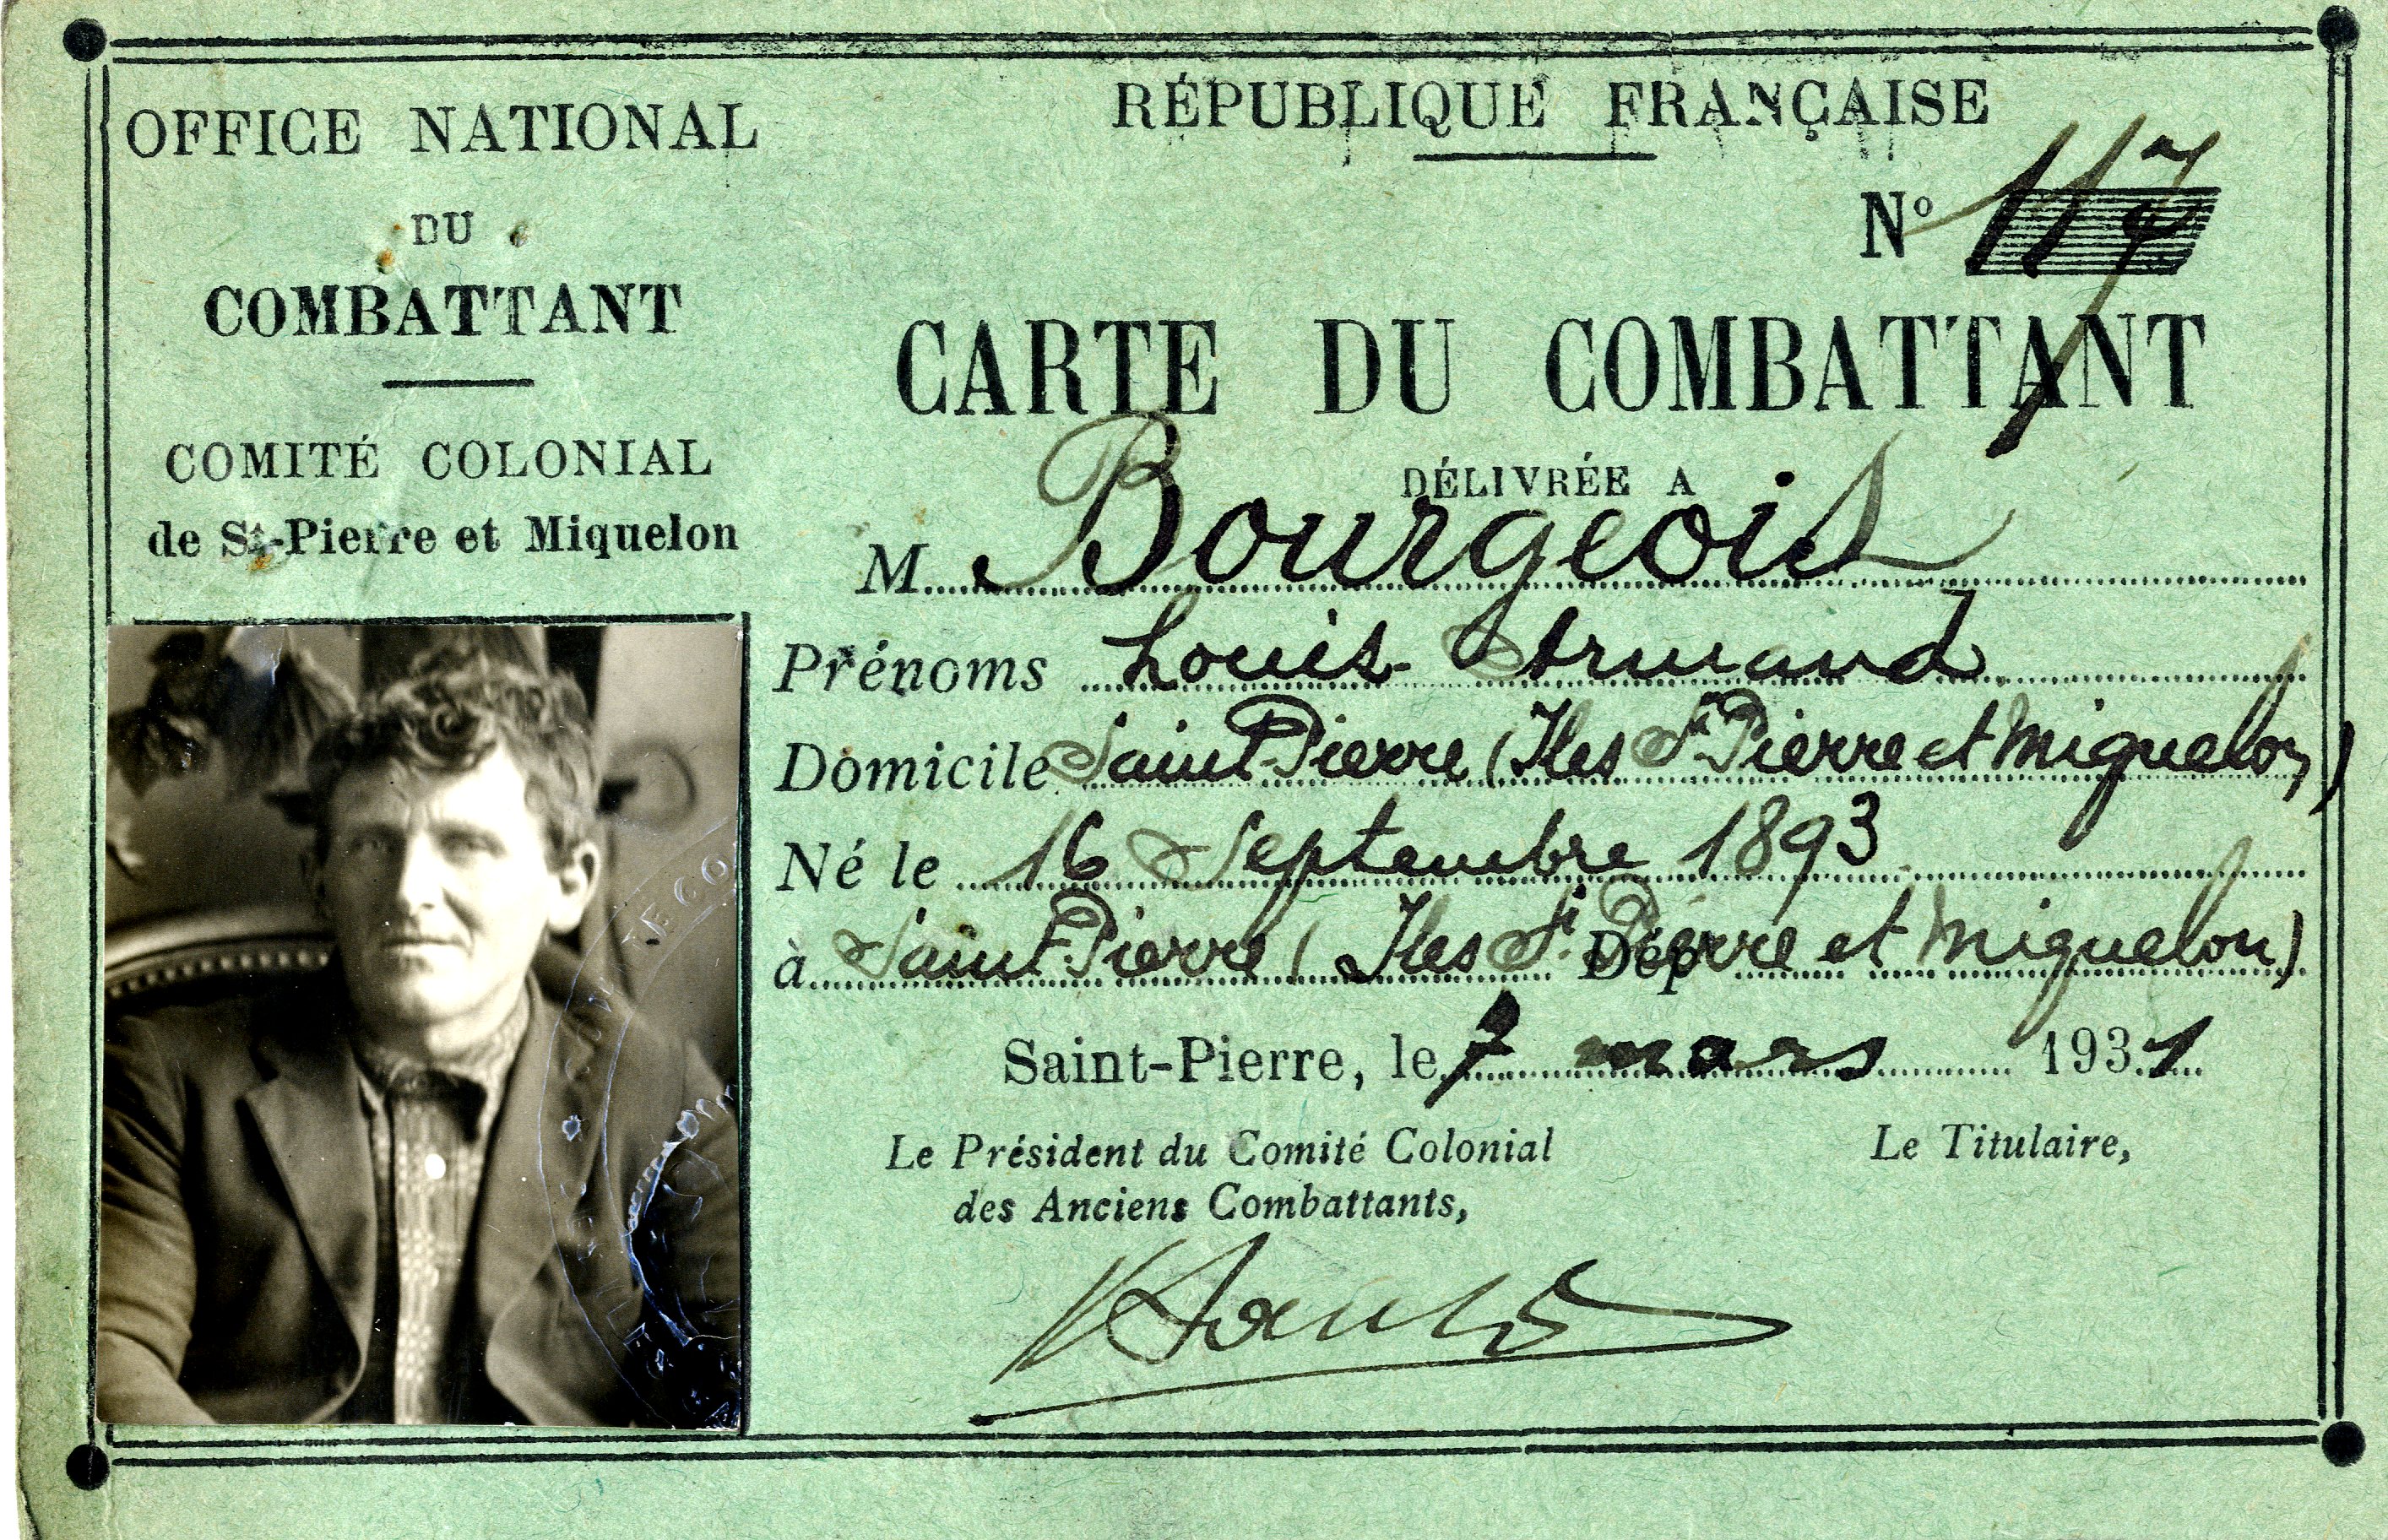 OFFICE NATIONAL
DU
COMBATTANT
COMITÉ COLONIAL
de St-Pierre et Miquelon
RÉPUBLIQUE FRANÇAISE
No 117
CARTE DU COMBATTANT
DÉLIVRÉE A
M. Bourgeois
Prénoms Louis Armand
Domicile Saint-Pierre (Iles St Pierre et Miquelon)
Né le 16 Septembre 1893
à Saint-Pierre (Iles St Dép Pierre et Miquelon)
Saint-Pierre, le 7 mars 1931
Le Président du Comité Colonial
des Anciens Combattants,
Le Titulaire,